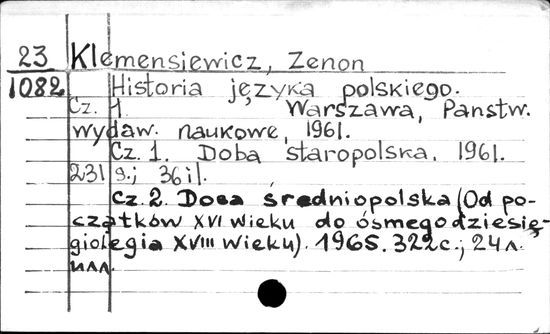 23 Klemensiewicz, Zenon
1082 Historia języka polskiego.
Cz. 1. Warszawa, Państw.
wydaw. naukowe, 1961.
Cz. 1. Doba staropolska, 1961.
231 s.; 36 il.
Cz. 2. Doba średniopolska (Od po-
czątków XVI wieku do ósmego dziesię-
giolegia XVIII wieku). 1965. 322 с.; 24 л.
илл.